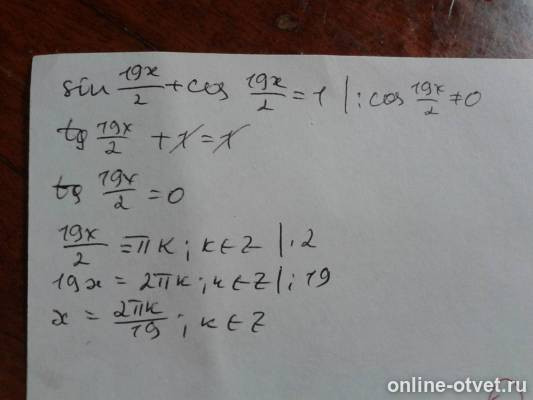 sin 19x/2 + cos 19x/2 = 1 | : cos 19x/2 ≠ 0
tg 19x/2 + 1 = 1
tg 19x/2 = 0
19x/2 = πk ; k ∈ Z | · 2
19x = 2πk ; k ∈ Z | : 19
x = 2πk/19 ; k ∈ Z
online-otvet.ru